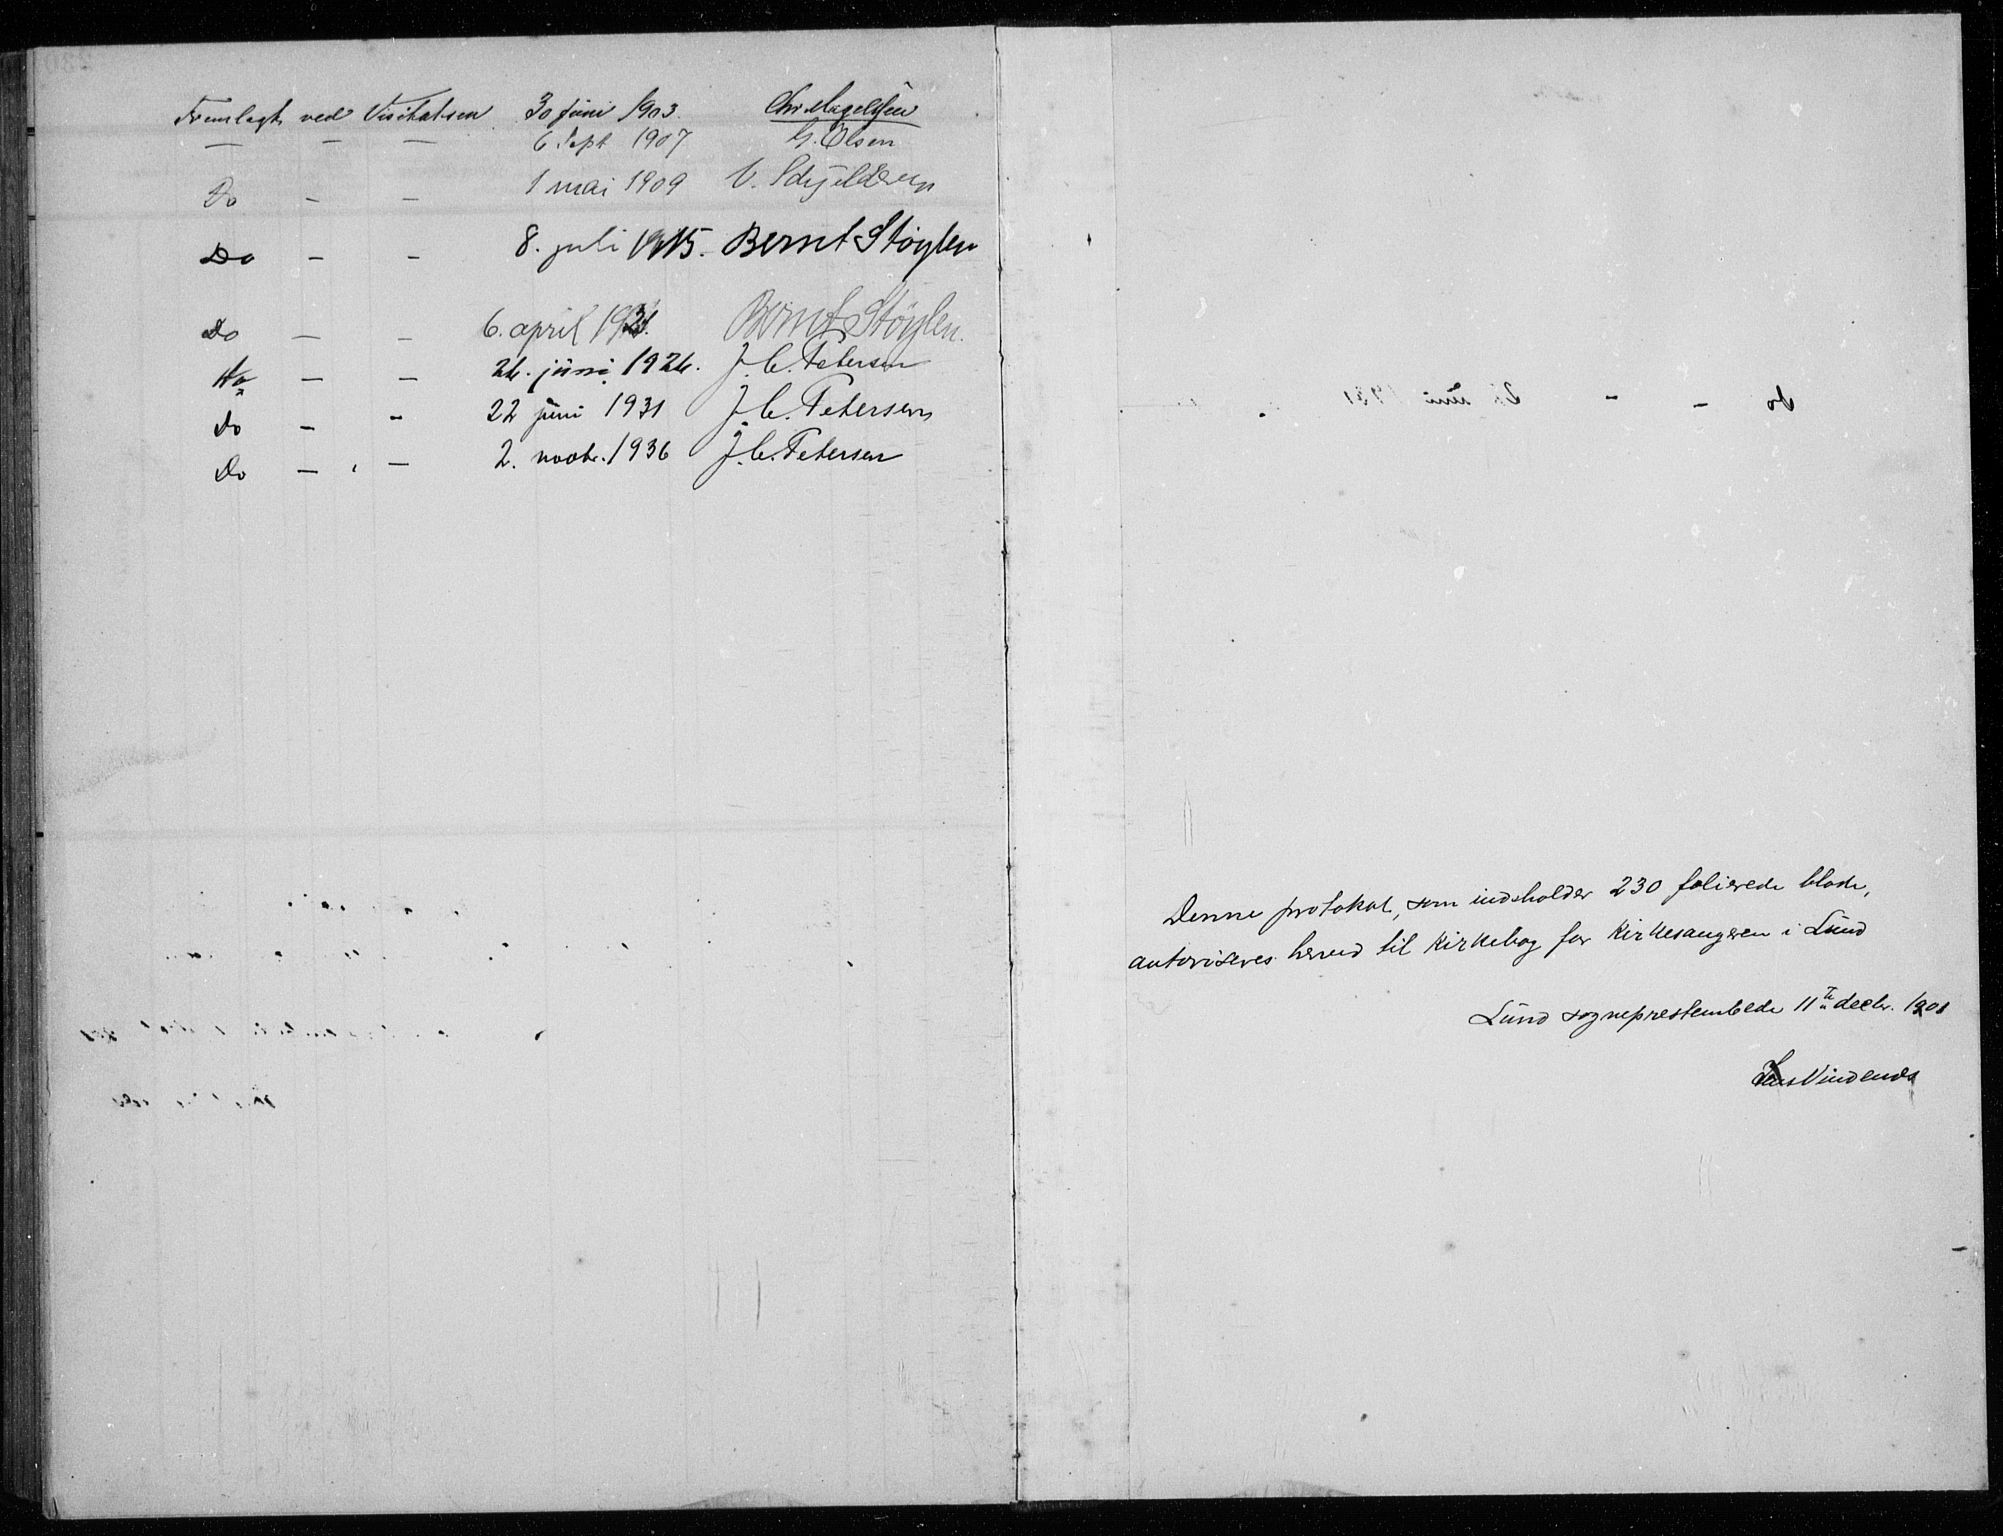 Fremlagt ved Visitatsen 30 juni 1903. Chr. Magelssen
— — — 6 Sept 1907 G. Olsen
Do — — 1 mai 1909 V. Schjelderup
Do — — 8. juli 1915. Bernt Støylen
Do — — 6. april 1921. Bernt Støylen.
Do — — 26. juni 1926. J. C. Petersen
Do — — 22 juni 1931 J. C. Petersen
Do — — 2. novbr. 1936 J. C. Petersen
Denne protokol, som indeholder 230 folierede blade,
autoriseres herved til Kirkebog for Kirkesangeren i Lund
Lund sogneprestembede 11te decbr. 1901
Jens Vindenes